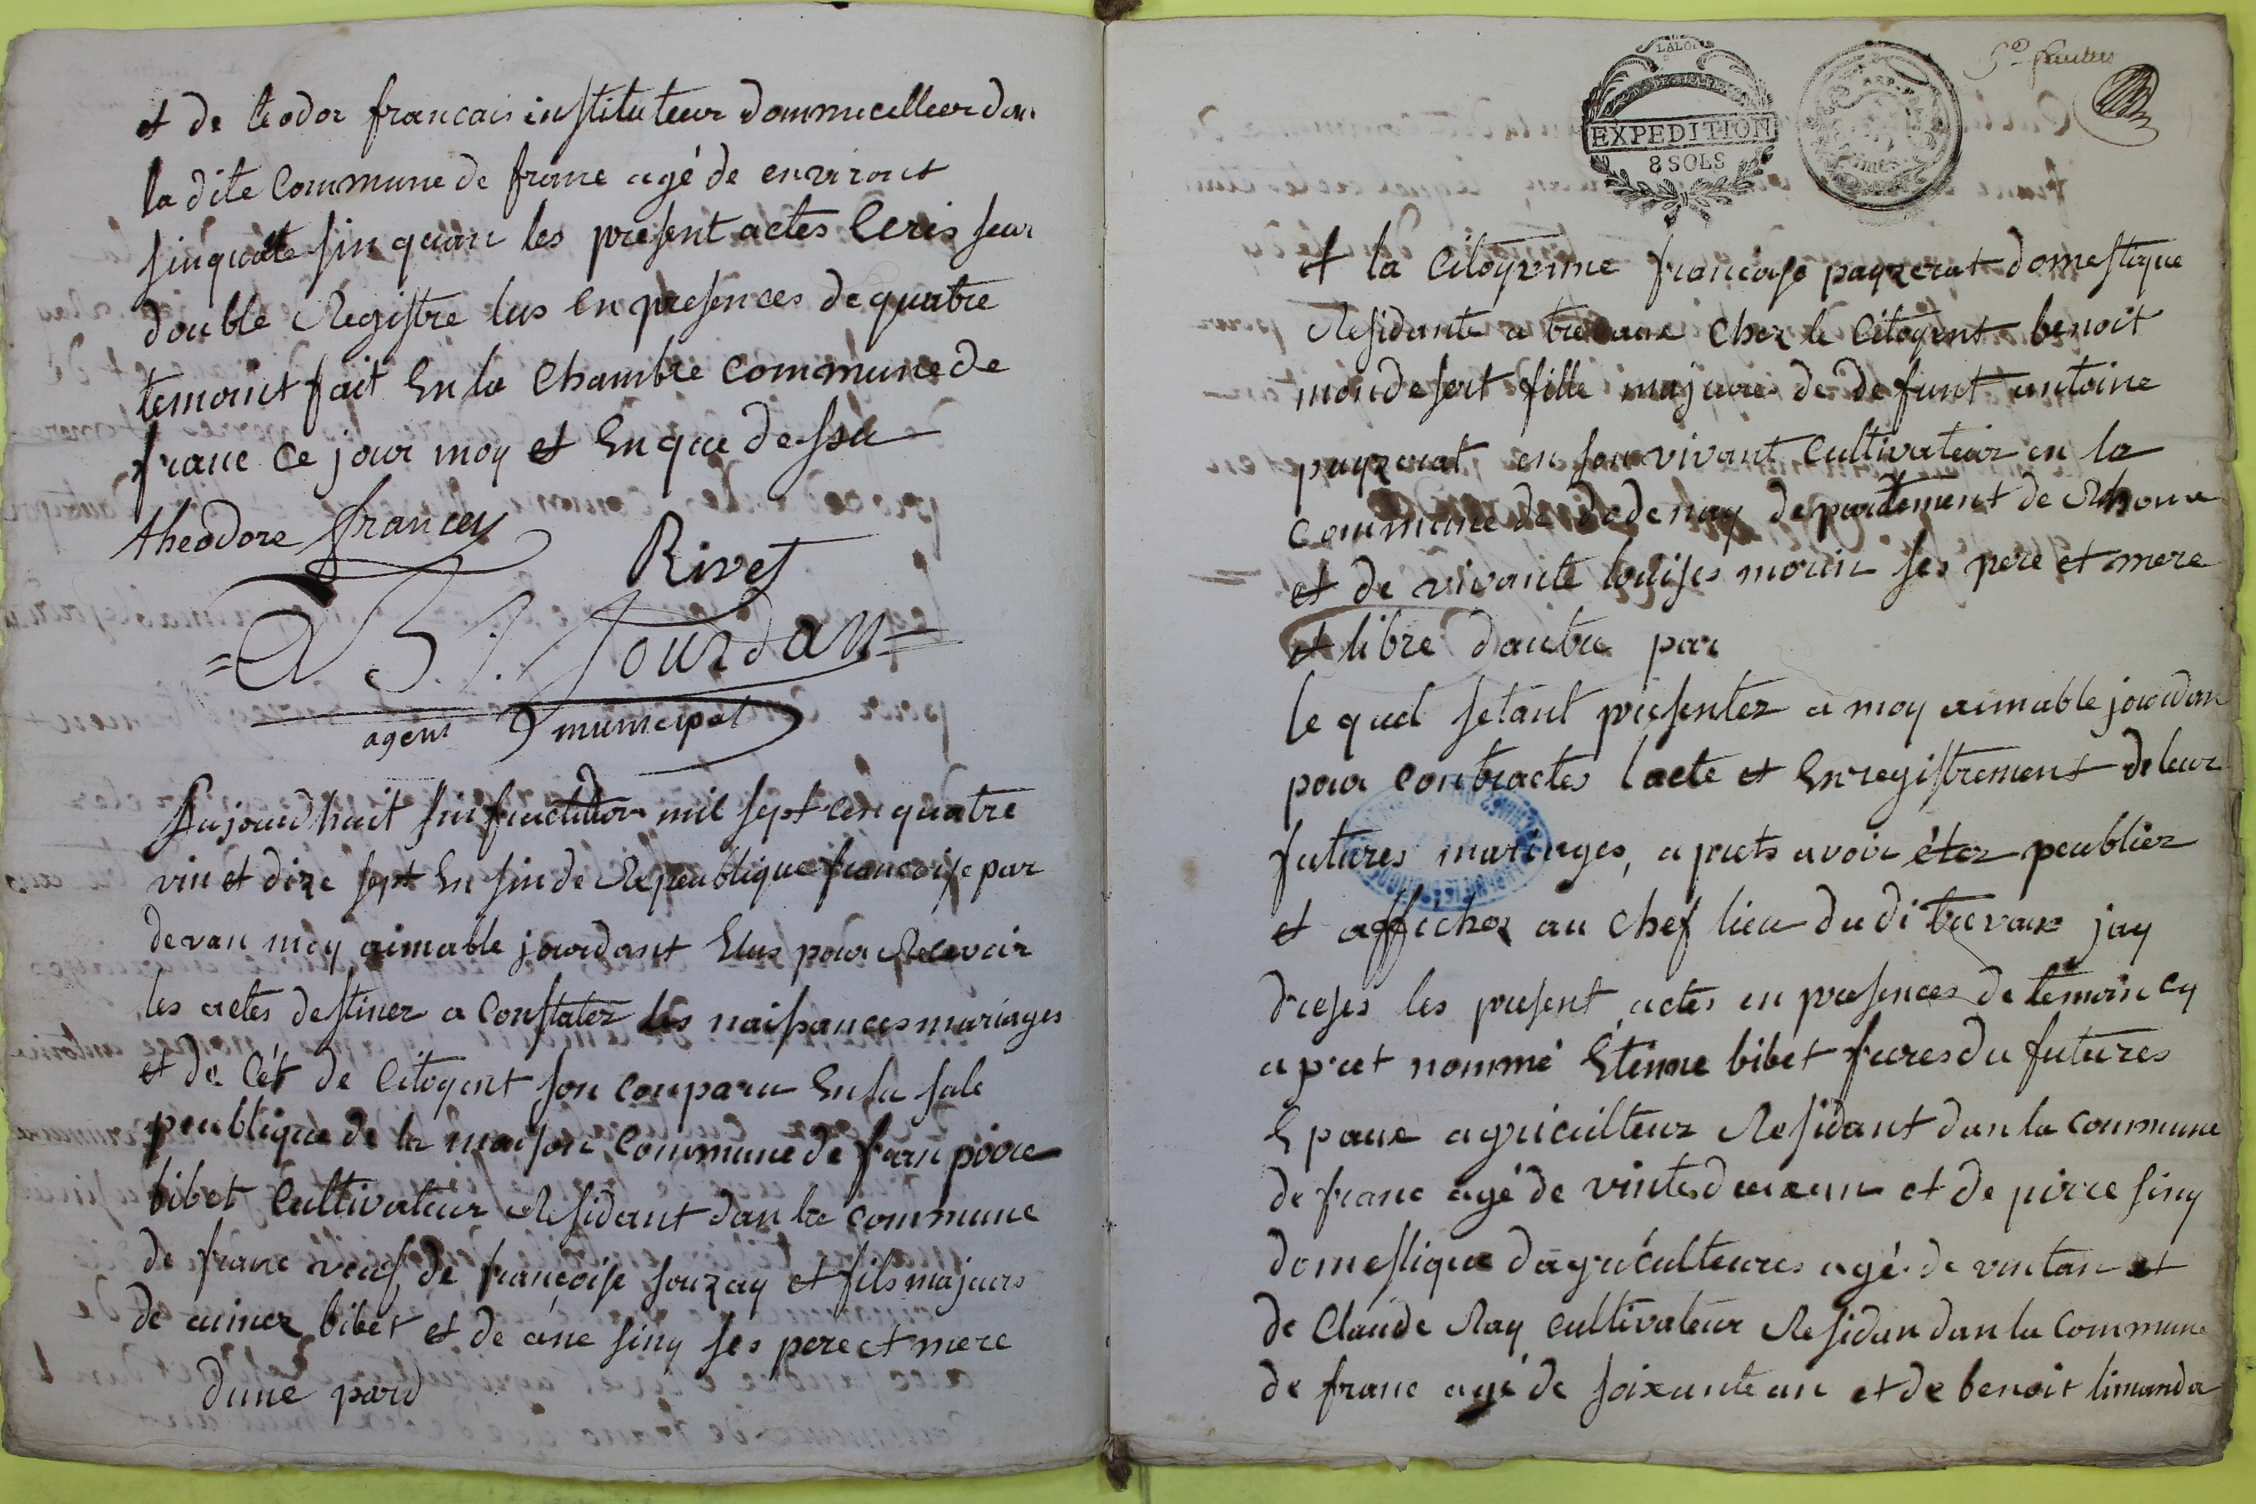 et de teodor francais instituteur dommucillier dan
la dite Commune de franc agé de environt
sinquate sin quan les present actes Ecris seur
double Registre lus en presences de quatre
temoint fait En la Chambre Commune de
franc ce jour moy et En que dessu
theodore francey
Rivet
A B. J. Jourdan
agent municipal
Aujourdhuit sin fructidor mil sept cen quatre
vin et dize sept En sin de Republique francoise par
devan moy aimable jourdant Elus pour Recevoir
les actes destiner a Constater les naissances mariages
et de Cét de Citoyent son conparu En la sale
peublique de la maison Commune de fran pirre
bibet Cultivateur Residant dan la commune
de franc veuf de francoise souzay et fils majeurs
de aimez bibet et de ane siny ses pere et mere
dune pard
LALOI
EXPEDITION
8 SOLS
et la Citoyenne francoise payzerat domestique
Residante a trevaux Chez le Citoyent benoit
mondesert fille majure de defunt antoine
payzerat en son vivant Cultivateur en la
commune de dedenay departement de Rhone
et de vivante louises morin ses pere et mere
et libre dautre par
le quel setant presenter a moy aimable jourdan
pour contractes lacte et Enregistrement de leur
futures mariages, a prets avoir étez peublier
et afficher au Chef lieu du di trevaux jay
dreses les present actes en presences de temoin cy
a pret nommé Etienne bibet freres du futures
Epaux agriculteur Residant dan la commune
de franc agé de vintes deux an et de pirre siny
domestique dagriculteures agé de vintan et
de Claude Ray cultivateur Residan dan la commune
de franc agé de soixante an et de benoit limanda